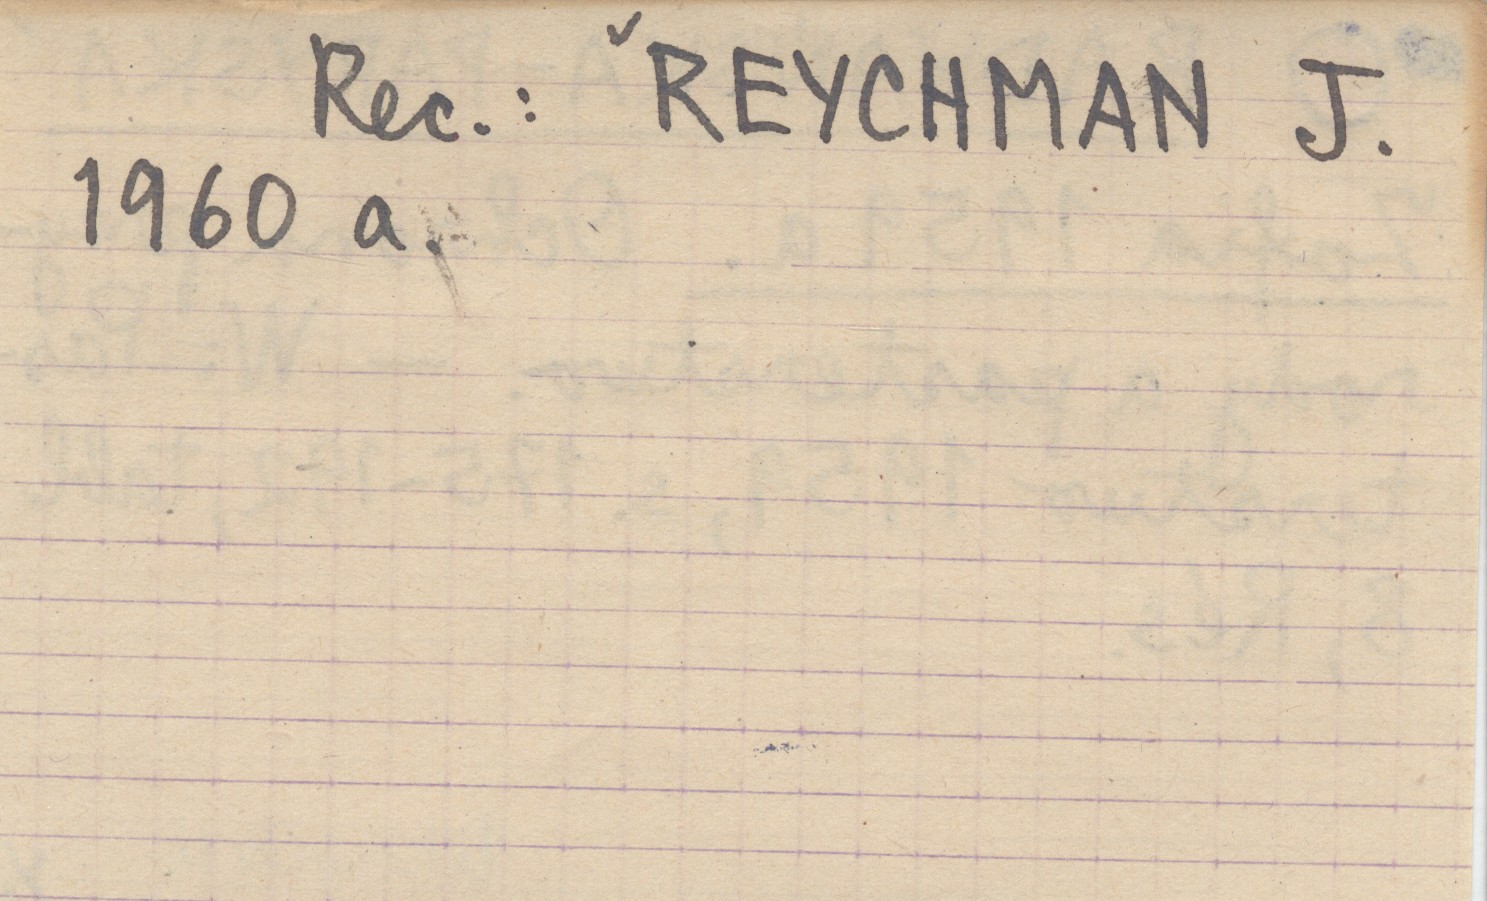 Rec.: ✓REYCHMAN J.
1960 a.